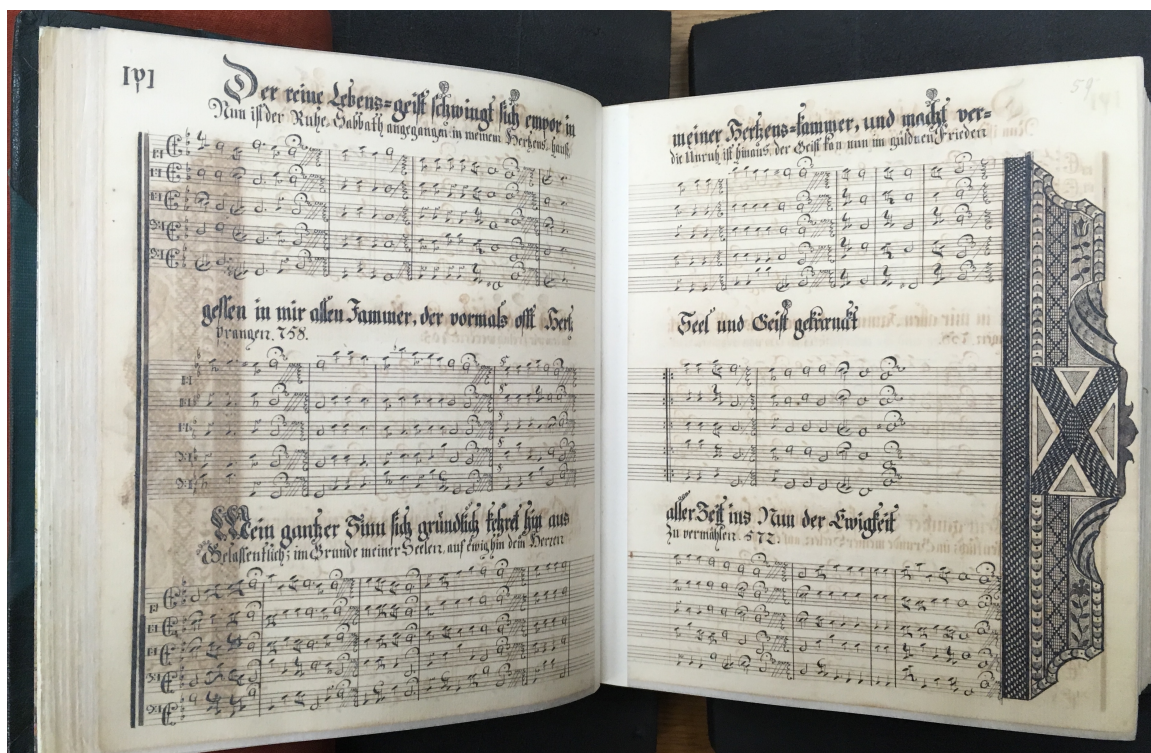 [p]
Der reine Lebens=geist schwingt sich empor in
Nun ist der Ruhe-Sabbath angegangen in meinem Hertzens hauß,
gessen in mir allen Jammer, der vormals offt Hertz
drangen. 758.
Mein gantzer Sinn sich gründlich kehret hin aus
Gelassentlich; im Grunde meiner Seelen, auf ewig hin dem Herren
59
meiner Hertzens=kammer, und macht ver=
die Unruh ist hinaus, der Geist kan nun im güldnen Frieden
Seel und Geist gekränckt
aller Zeit ins Nun der Ewigkeit
zu vermählen. 572.